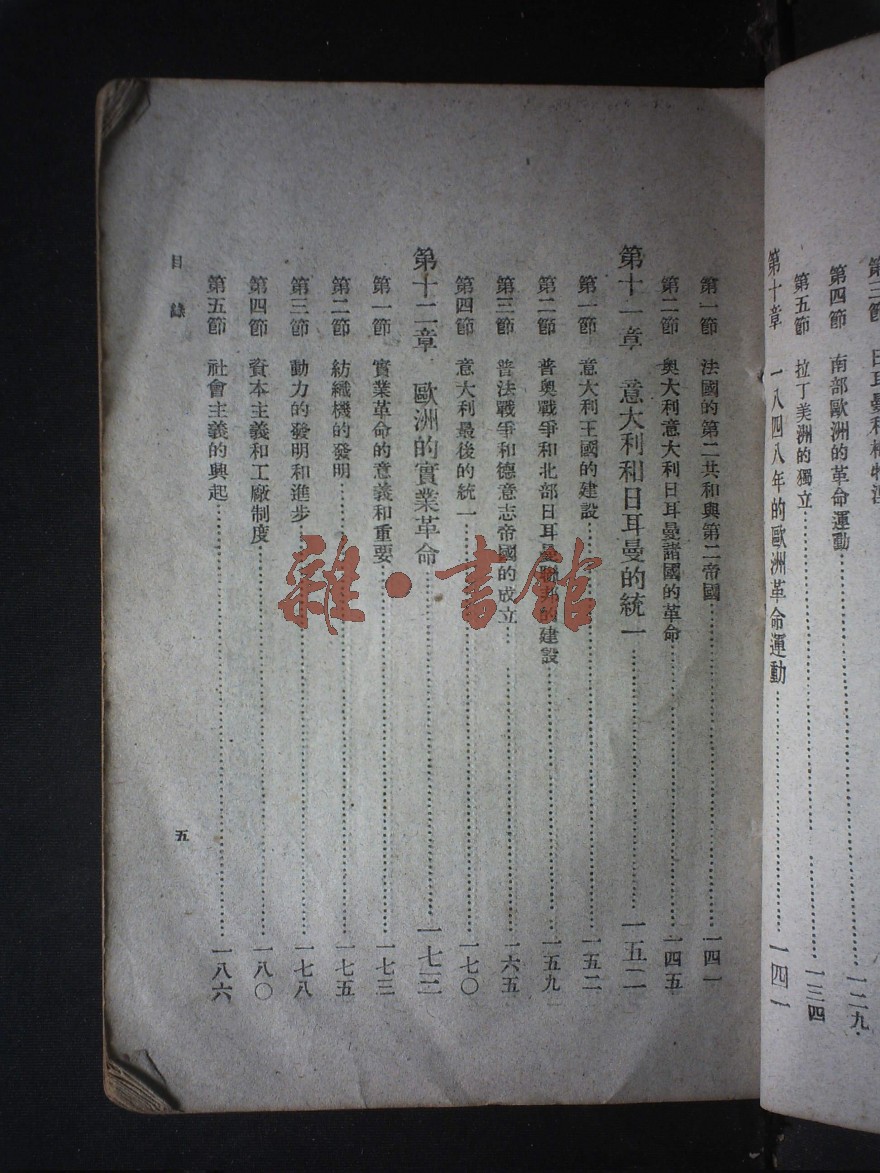 第三節
第四節　南部歐洲的革命運動……一二九
第五節　拉丁美洲的獨立……一三四
第十章　一八四八年的歐洲革命運動……一四一
第一節　法國的第二共和與第二帝國……一四一
第二節　奧大利意大利日耳曼諸國的革命……一四五
第十一章　意大利和日耳曼的統一……一五二
第一節　意大利王國的建設……一五二
第二節　普奧戰爭和北部日耳曼聯邦的建設……一五九
第三節　普法戰爭和德意志帝國的成立……一六五
第四節　意大利最後的統一……一七〇
第十二章　歐洲的實業革命……一七三
第一節　實業革命的意義和重要……一七三
第二節　紡織機的發明……一七五
第三節　動力的發明和進步……一七八
第四節　資本主義和工廠制度……一八〇
第五節　社會主義的興起……一八六
目錄
五
雜·書館